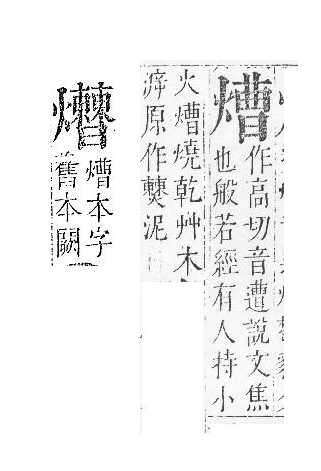 㷮
作高切音遭說文焦
也般若經有人持小
火㷮燒乾艸木
原作泥
㷮本字
舊本闕